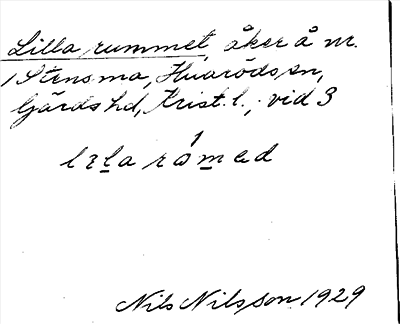 Lilla rummet, åker å nr.
1 Stensma, Huaröds sn,
Gärds hd, Krist. l., vid 3
Nils Nilsson 1929